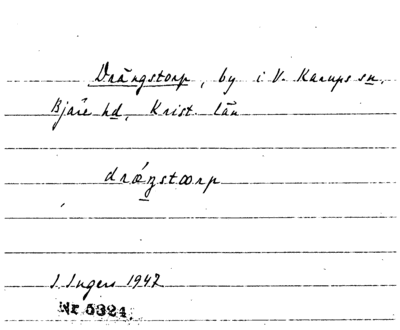 Drängstorp, by i V. Karups sn,
Bjäre hd, Krist. län
I. Ingers 1942
Nr 5324.